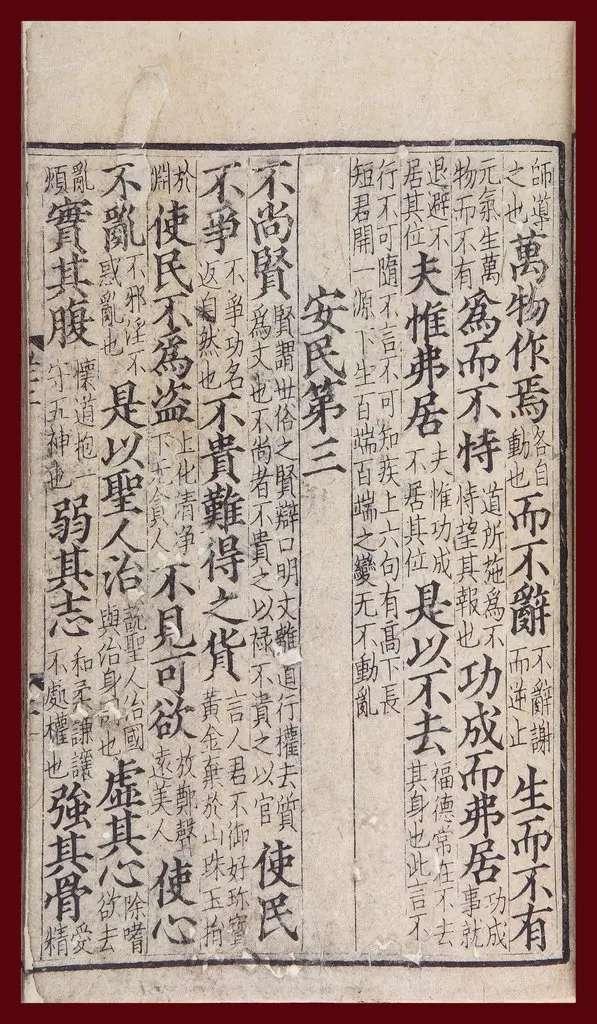 師導之也萬物作焉各自動也而不辭不辭謝而逆止生而不有
元氣生萬物而不有爲而不恃道所施為不恃望其報也功成而弗居功成事就
退避不居其位夫惟弗居夫惟功成不居其位是以不去福德常在不去其身也此言不
行不可隨不言不可知疾上六句有高下長短君開一源下生百端百端之變无不動亂
安民第三
不尚賢賢謂世俗之賢辯口明文離道行權去質爲文也不尚者不貴之以禄不貴之以官使民
不爭不爭功名返自然也不貴難得之貨言人君不御好珎寶黃金棄於山珠玉捐
於淵使民不為盜上化清净下无貪人不見可欲放鄭聲遠美人使心
不亂不邪淫不惑亂也是以聖人治說聖人治國與治身同也虛其心除嗜欲去
亂煩實其腹懷道抱一守五神也弱其志和柔謙讓不處權也強其骨愛精